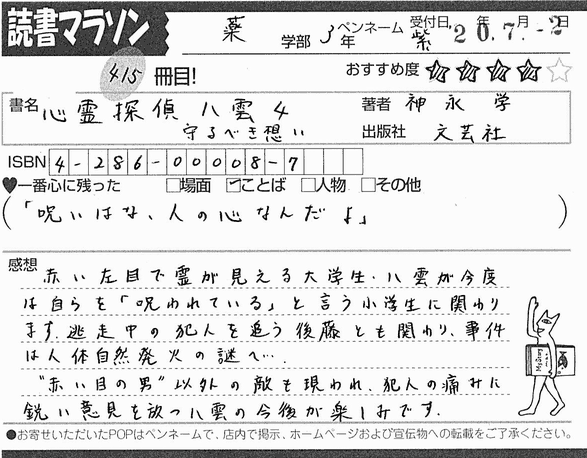 読書マラソン
薬 学部 3年 ペンネーム 紫 受付日 20.年7.月-2日
415 冊目! おすすめ度 ★★★★☆
書名 心霊探偵八雲4 著者 神永学
守るべき想い 出版社 文芸社
ISBN 4-286-00008-7
♥一番心に残った □場面 ☑ことば □人物 □その他
(「呪いはな、人の心なんだよ」)
感想
赤い左目で霊が見える大学生・八雲が今度
は自らを「呪われている」と言う小学生に関わり
ます。逃走中の犯人を追う後藤とも関わり、事件
は人体自然発火の謎へ…。
"赤い目の男"以外の敵も現われ、犯人の痛みに
鋭い意見を放つ八雲の今後が楽しみです。
Mystery
●お寄せいただいたPOPはペンネームで、店内で掲示、ホームページおよび宣伝物への転載をご了承ください。